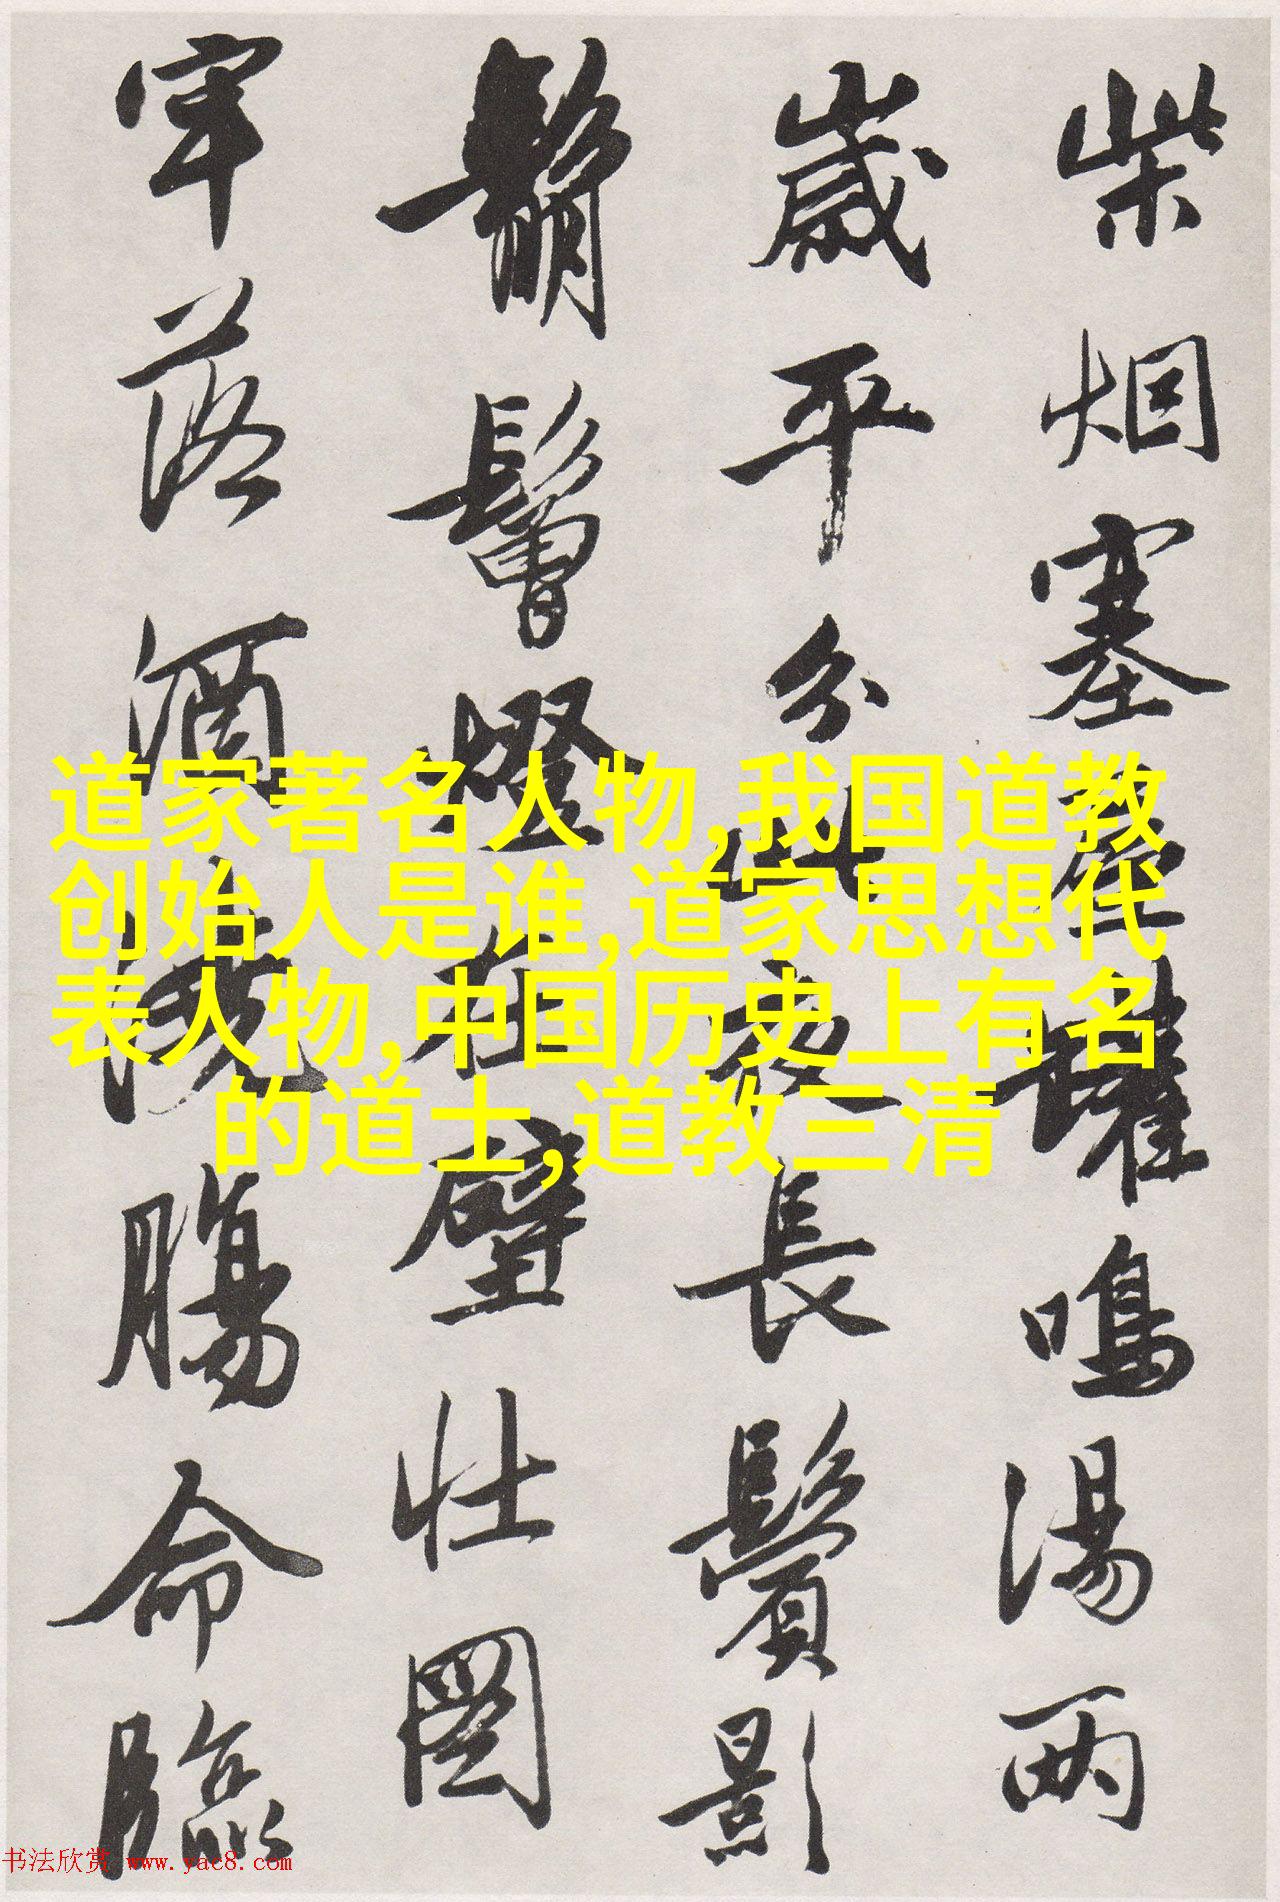 柴烟塞屋罐鳴湯两
歲平分此夜長鬢影
鬅鬙燈在壁壮圖
牢落酒澆腸命臨
道家著名人物,我国道教
创始人是谁,道家思想代
表人物,中国历史上有名
的道士,道教三清
书法欣赏 www.yac8.com